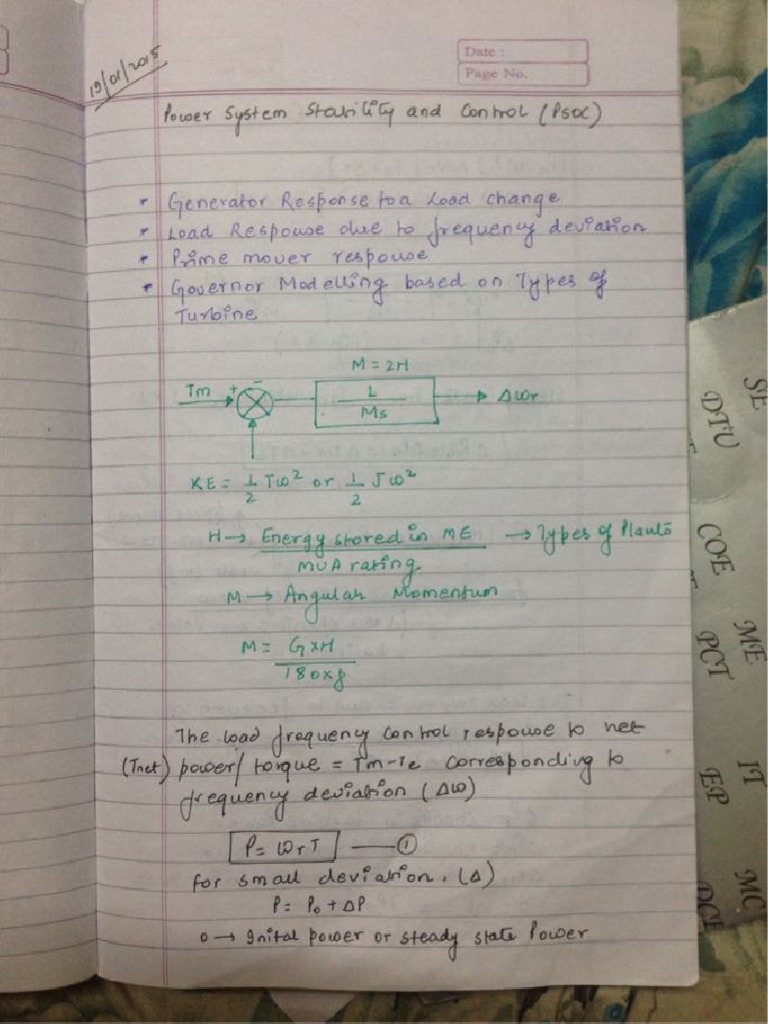 19/01/2015
Date :
Page No.
Power System Stability and Control (PSOC)
* Generator Response to a Load change
* Load Response due to frequency deviation
* Prime mover response
* Governor Modelling based on Types of
Turbine
M = 2H
Tm + - 1/Ms → Δωr
KE = 1/2 Iω² or 1/2 Jω²
H → Energy stored in ME → Types of Plants
MVA rating
M → Angular Momentum
M = G×H
180×f
The load frequency control response to net
(Tnet) power/torque = Tm-Te corresponding to
frequency deviation (Δω)
P = ωrT —①
for small deviation, (Δ)
P = P₀ + ΔP
0 → Inital power or steady state Power
SE
DTU
COE
ME
PCT
IT
EP
MC
PCE